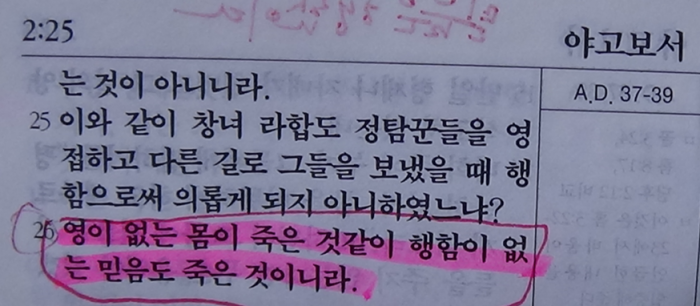 2:25
야고보서
A.D. 37-39
는 것이 아니니라.
25 이와 같이 창녀 라합도 정탐꾼들을 영
접하고 다른 길로 그들을 보냈을 때 행
함으로써 의롭게 되지 아니하였느냐?
26 영이 없는 몸이 죽은 것같이 행함이 없
는 믿음도 죽은 것이니라.